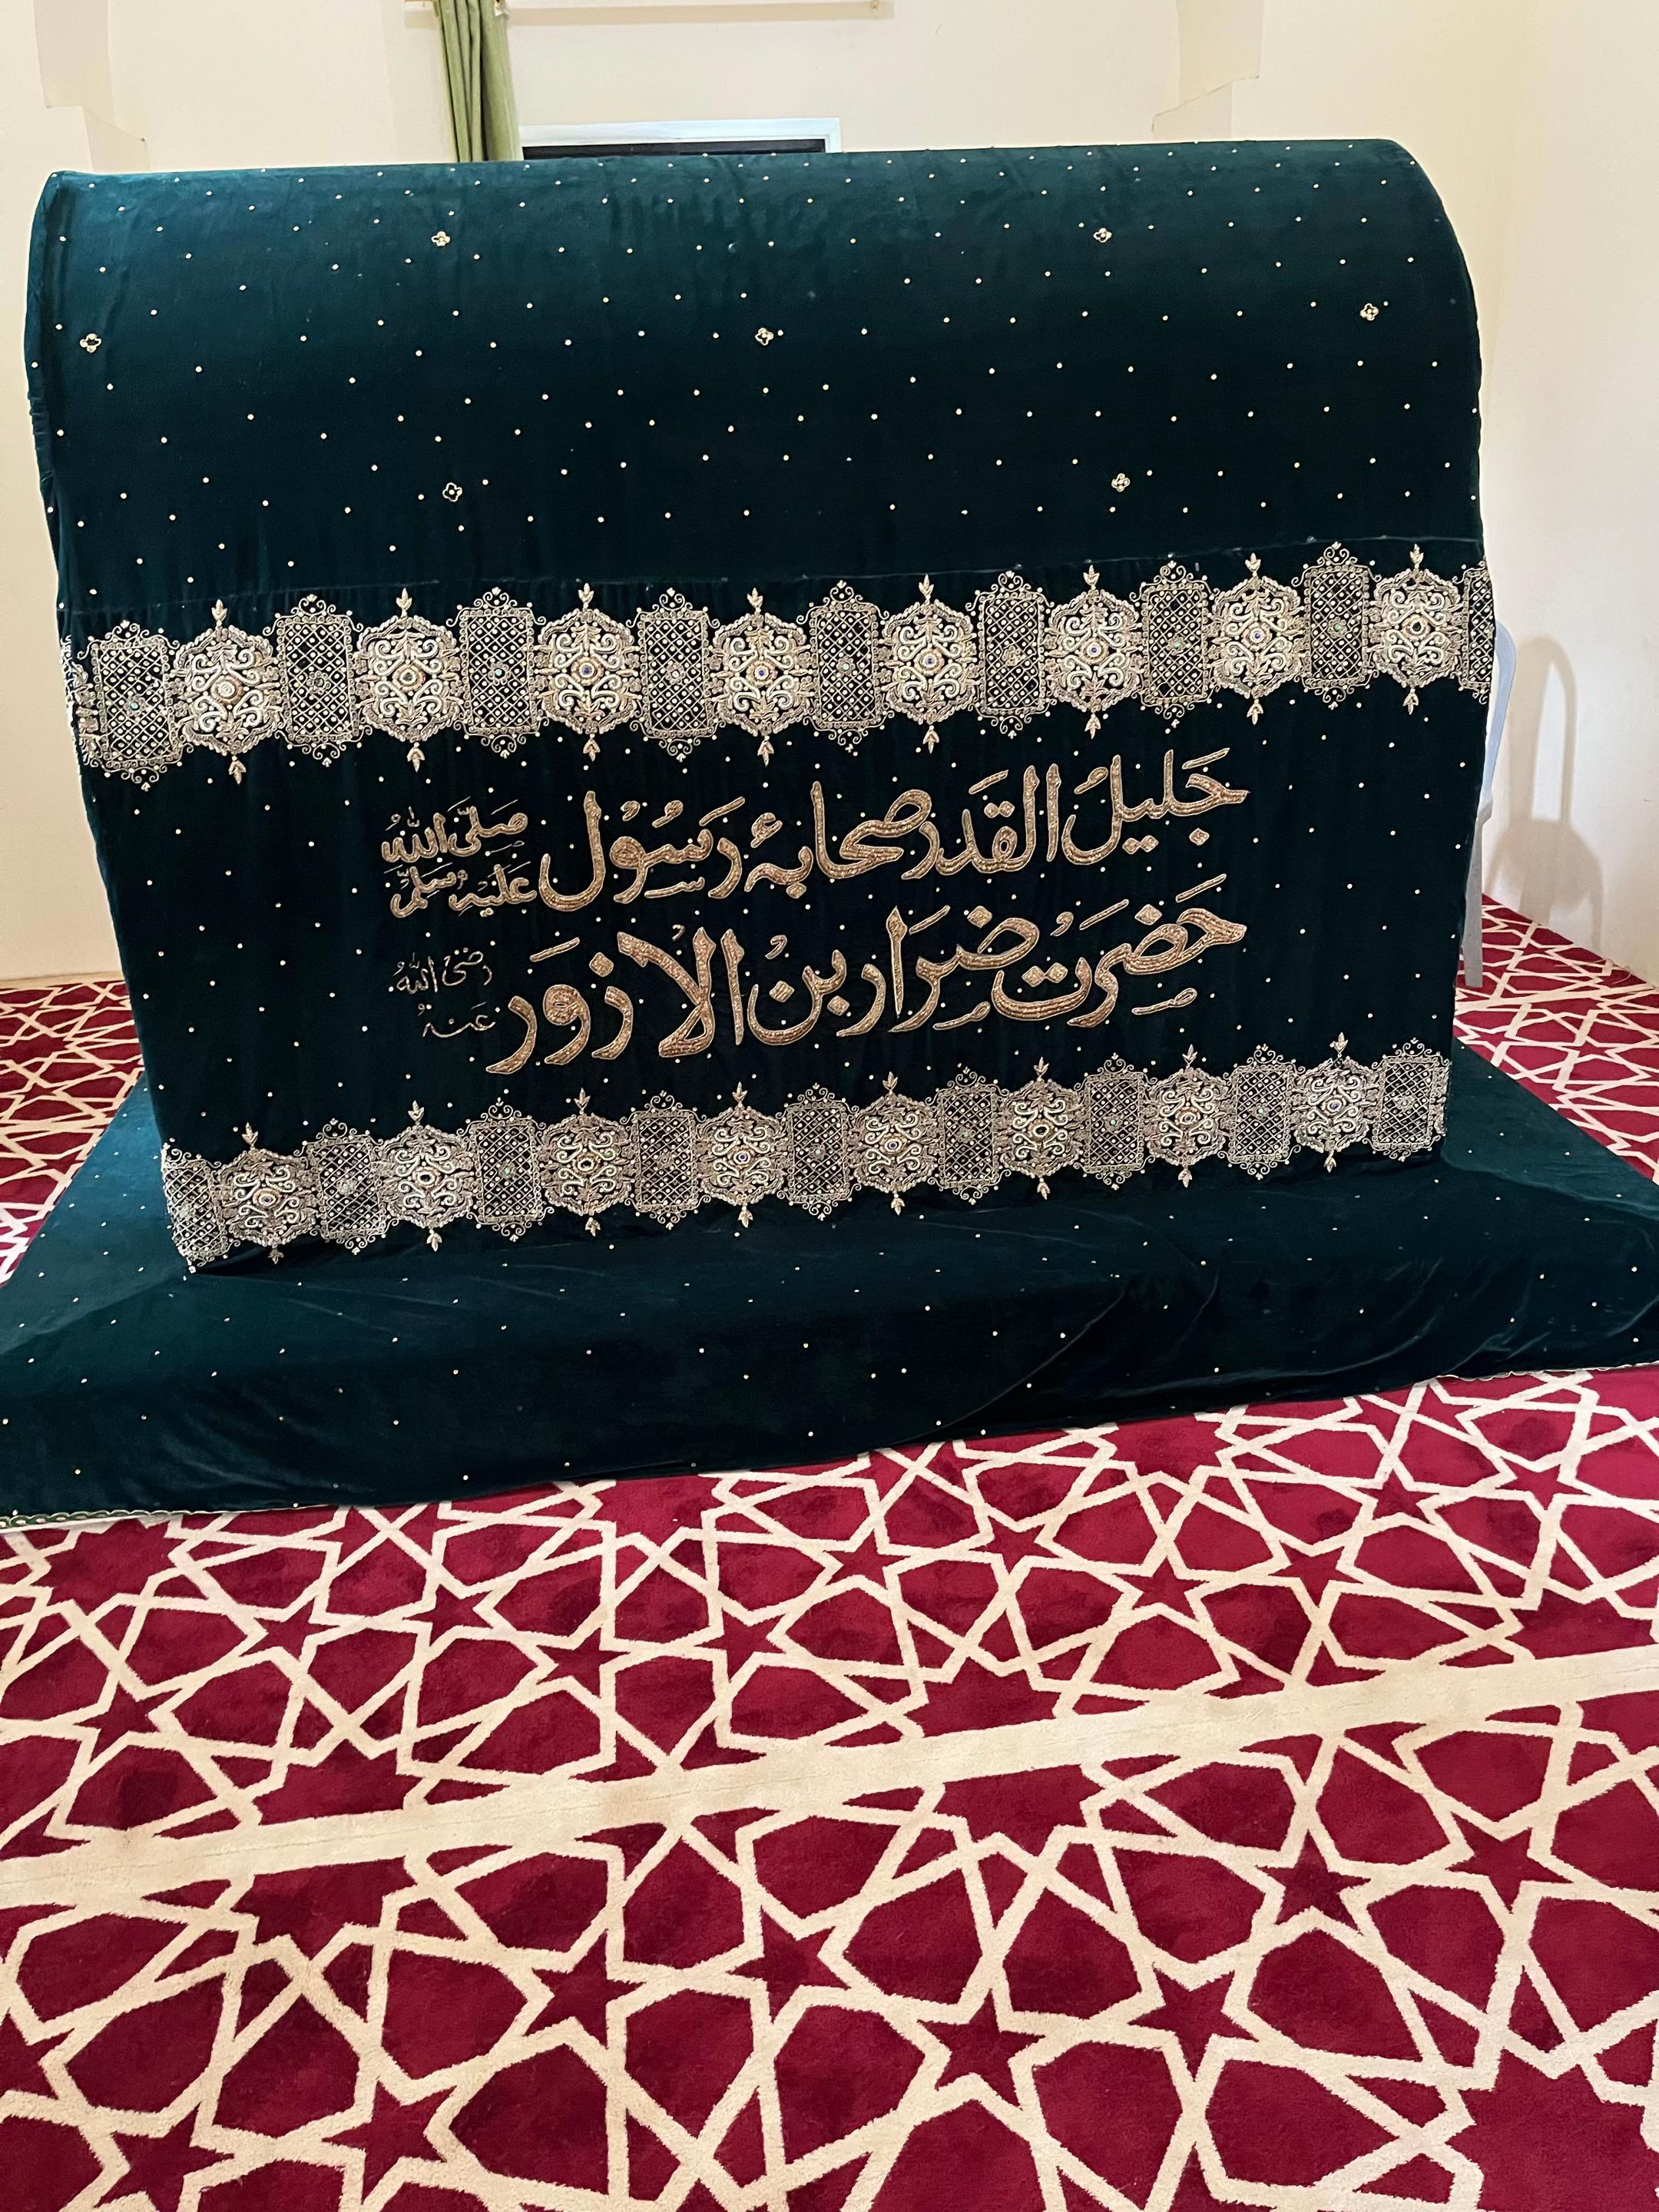 جَلیلُ القَدر صحابۂ رَسُوْل صَلَّی اللہُ عَلَیْہِ وَسَلَّمَ
حَضِرَت ضِرَار بنُ الازوَر رَضِیَ اللہُ عَنہُ